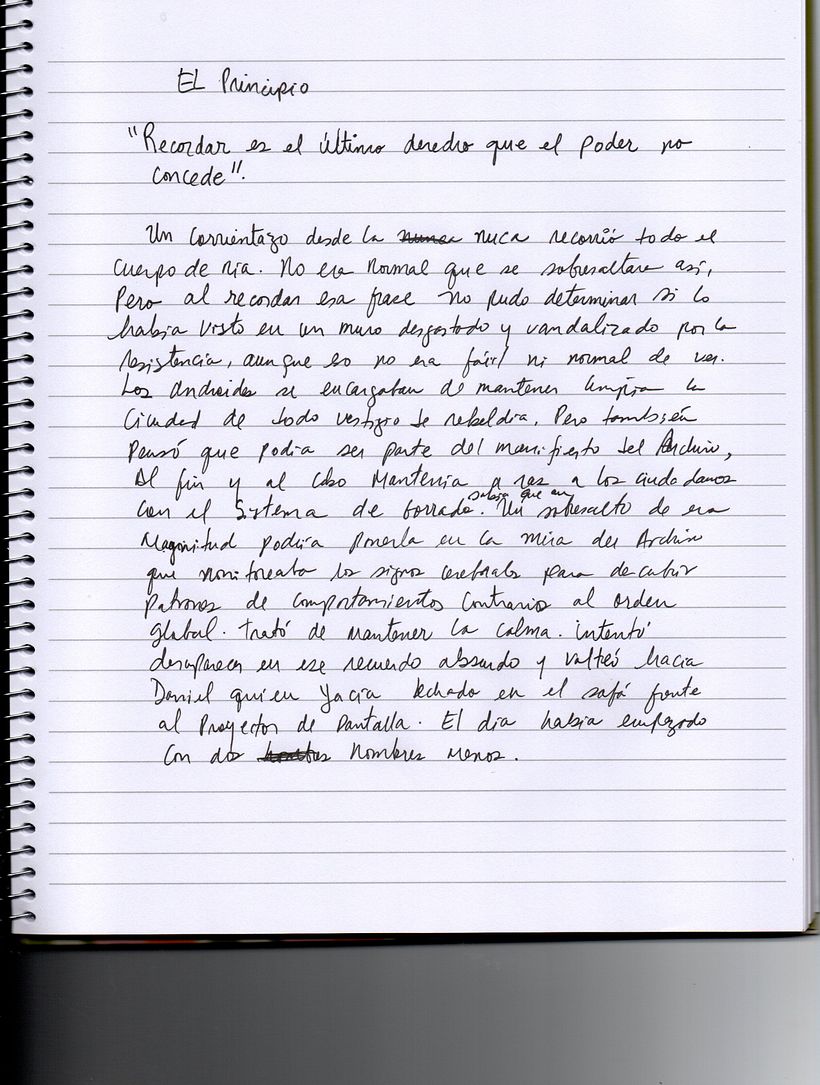 EL Principio
"Recordar es el último derecho que el poder no
concede".
Un corrientazo desde la nuca recorrió todo el
cuerpo de Nia. No era normal que se sobresaltara así,
Pero al recordar esa frase no pudo determinar si lo
había visto en un muro desgastado y vandalizado por la
resistencia, aunque eso no era fácil ni normal de ver.
Los androides se encargaban de mantener limpia la
Ciudad de todo vestigio de rebeldía. Pero también
Pensó que podía ser parte del manifiesto del Archivo,
Al fin y al cabo Mantenía a los ciudadanos
con el Sistema de borrado. sabía que un
Un sobresalto de era
Magnitud podría ponerla en la mira del Archivo
que monitoreaba los signos cerebrales para descubrir
patrones de comportamientos contrarios al orden
global. Trató de mantener la calma. intentó
desaparecer en ese recuerdo absurdo y volteó hacia
Daniel quien yacía echado en el sofá frente
al Proyector de Pantalla. El día había empezado
con dos Nombres menos.